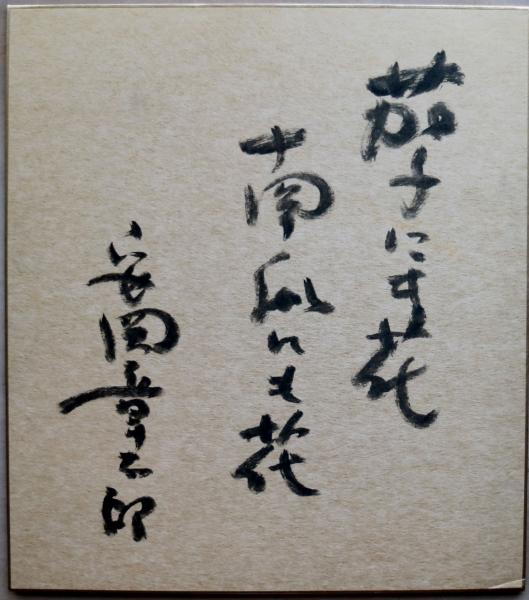 茄子にも花
南瓜にも花
安岡章太郎